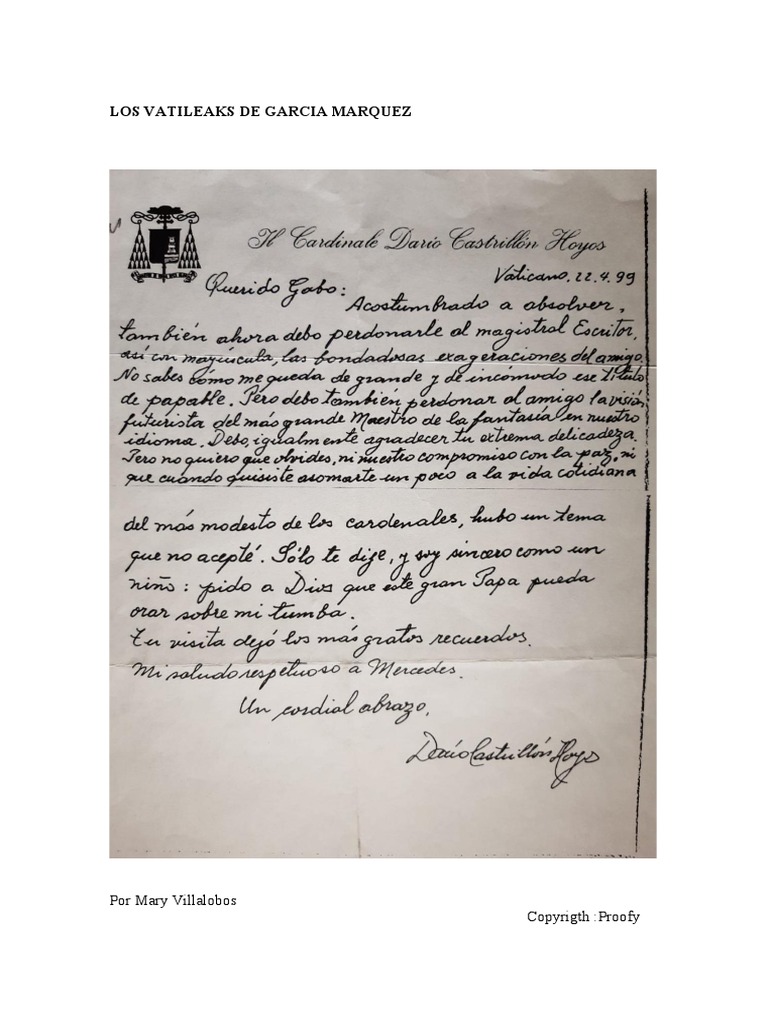 LOS VATILEAKS DE GARCIA MARQUEZ
Il Cardinale Darío Castrillón Hoyos
Vaticano, 22.4.99
Querido Gabo:
Acostumbrado a absolver,
también ahora debo perdonarle al magistral Escritor,
así con mayúscula, las bondadosas exageraciones del amigo.
No sabes cómo me queda de grande y de incómodo ese título
de papable. Pero debo también perdonar al amigo la visión
futurista del más grande Maestro de la fantasía en nuestro
idioma. Debo, igualmente agradecer tu extrema delicadeza.
Pero no quiero que olvides, ni nuestro compromiso con la paz, ni
que cuando quisiste asomarte un poco a la vida cotidiana
del más modesto de los cardenales, hubo un tema
que no acepté. Sólo te dije, y soy sincero como un
niño: pido a Dios que este gran Papa pueda
orar sobre mi tumba.
Tu visita dejó los más gratos recuerdos.
Mi saludo respetuoso a Mercedes.
Un cordial abrazo,
Darío Castrillón Hoyos
Por Mary Villalobos
Copyrigth :Proofy